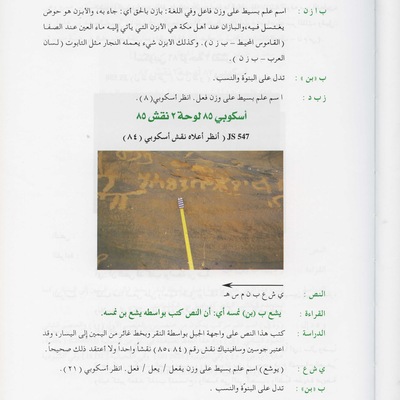 ب ا ز ن : اسم علم بسيط على وزن فاعل وفي اللغة: بازن بالحق أي: جاء به، والابزن هو حوض
يغتسل فيه،والبازان عند اهل مكة هي الابزن التي يأتي إليه ماء العين عند الصفا
( القاموس المحيط – ب ز ن ). وكذلك الابزن شيء يعمله النجار مثل التابوت ( لسان
العرب – ب ز ن ) .
ب «بن» : تدل على البنوّة والنسب .
ز ب د : ا سم علم بسيط على وزن فعل. انظر أسكوبي(٨) .
أسكوبي ٨٥ لوحة ٢ نقش ٨٥
JS 547 ( أنظر أعلاه نقش أسكوبي ( ٨٤ )
النص : ي ش ع ب ن م س هـ
القراءة : يشع ب (بن) نمسه أي: أن النص كتب بواسطه يشع بن نمسه.
الدراسة : كتب هذا النص على واجهة الجبل بواسطة النقر وبخط غائر من اليمين إلى اليسار، وقد
اعتبر جوسين وسافينياك نقش رقم ( ٨٤ ،٨٥ ) نقشاً واحداً ولا أعتقد ذلك صحيحاً.
ي ش ع : (يوشع) اسم علم بسيط على وزن يفعل / يعل / فعل. انظر أسكوبي ( ٢١ ).
ب «بن» : تدل على البنوّة والنسب .